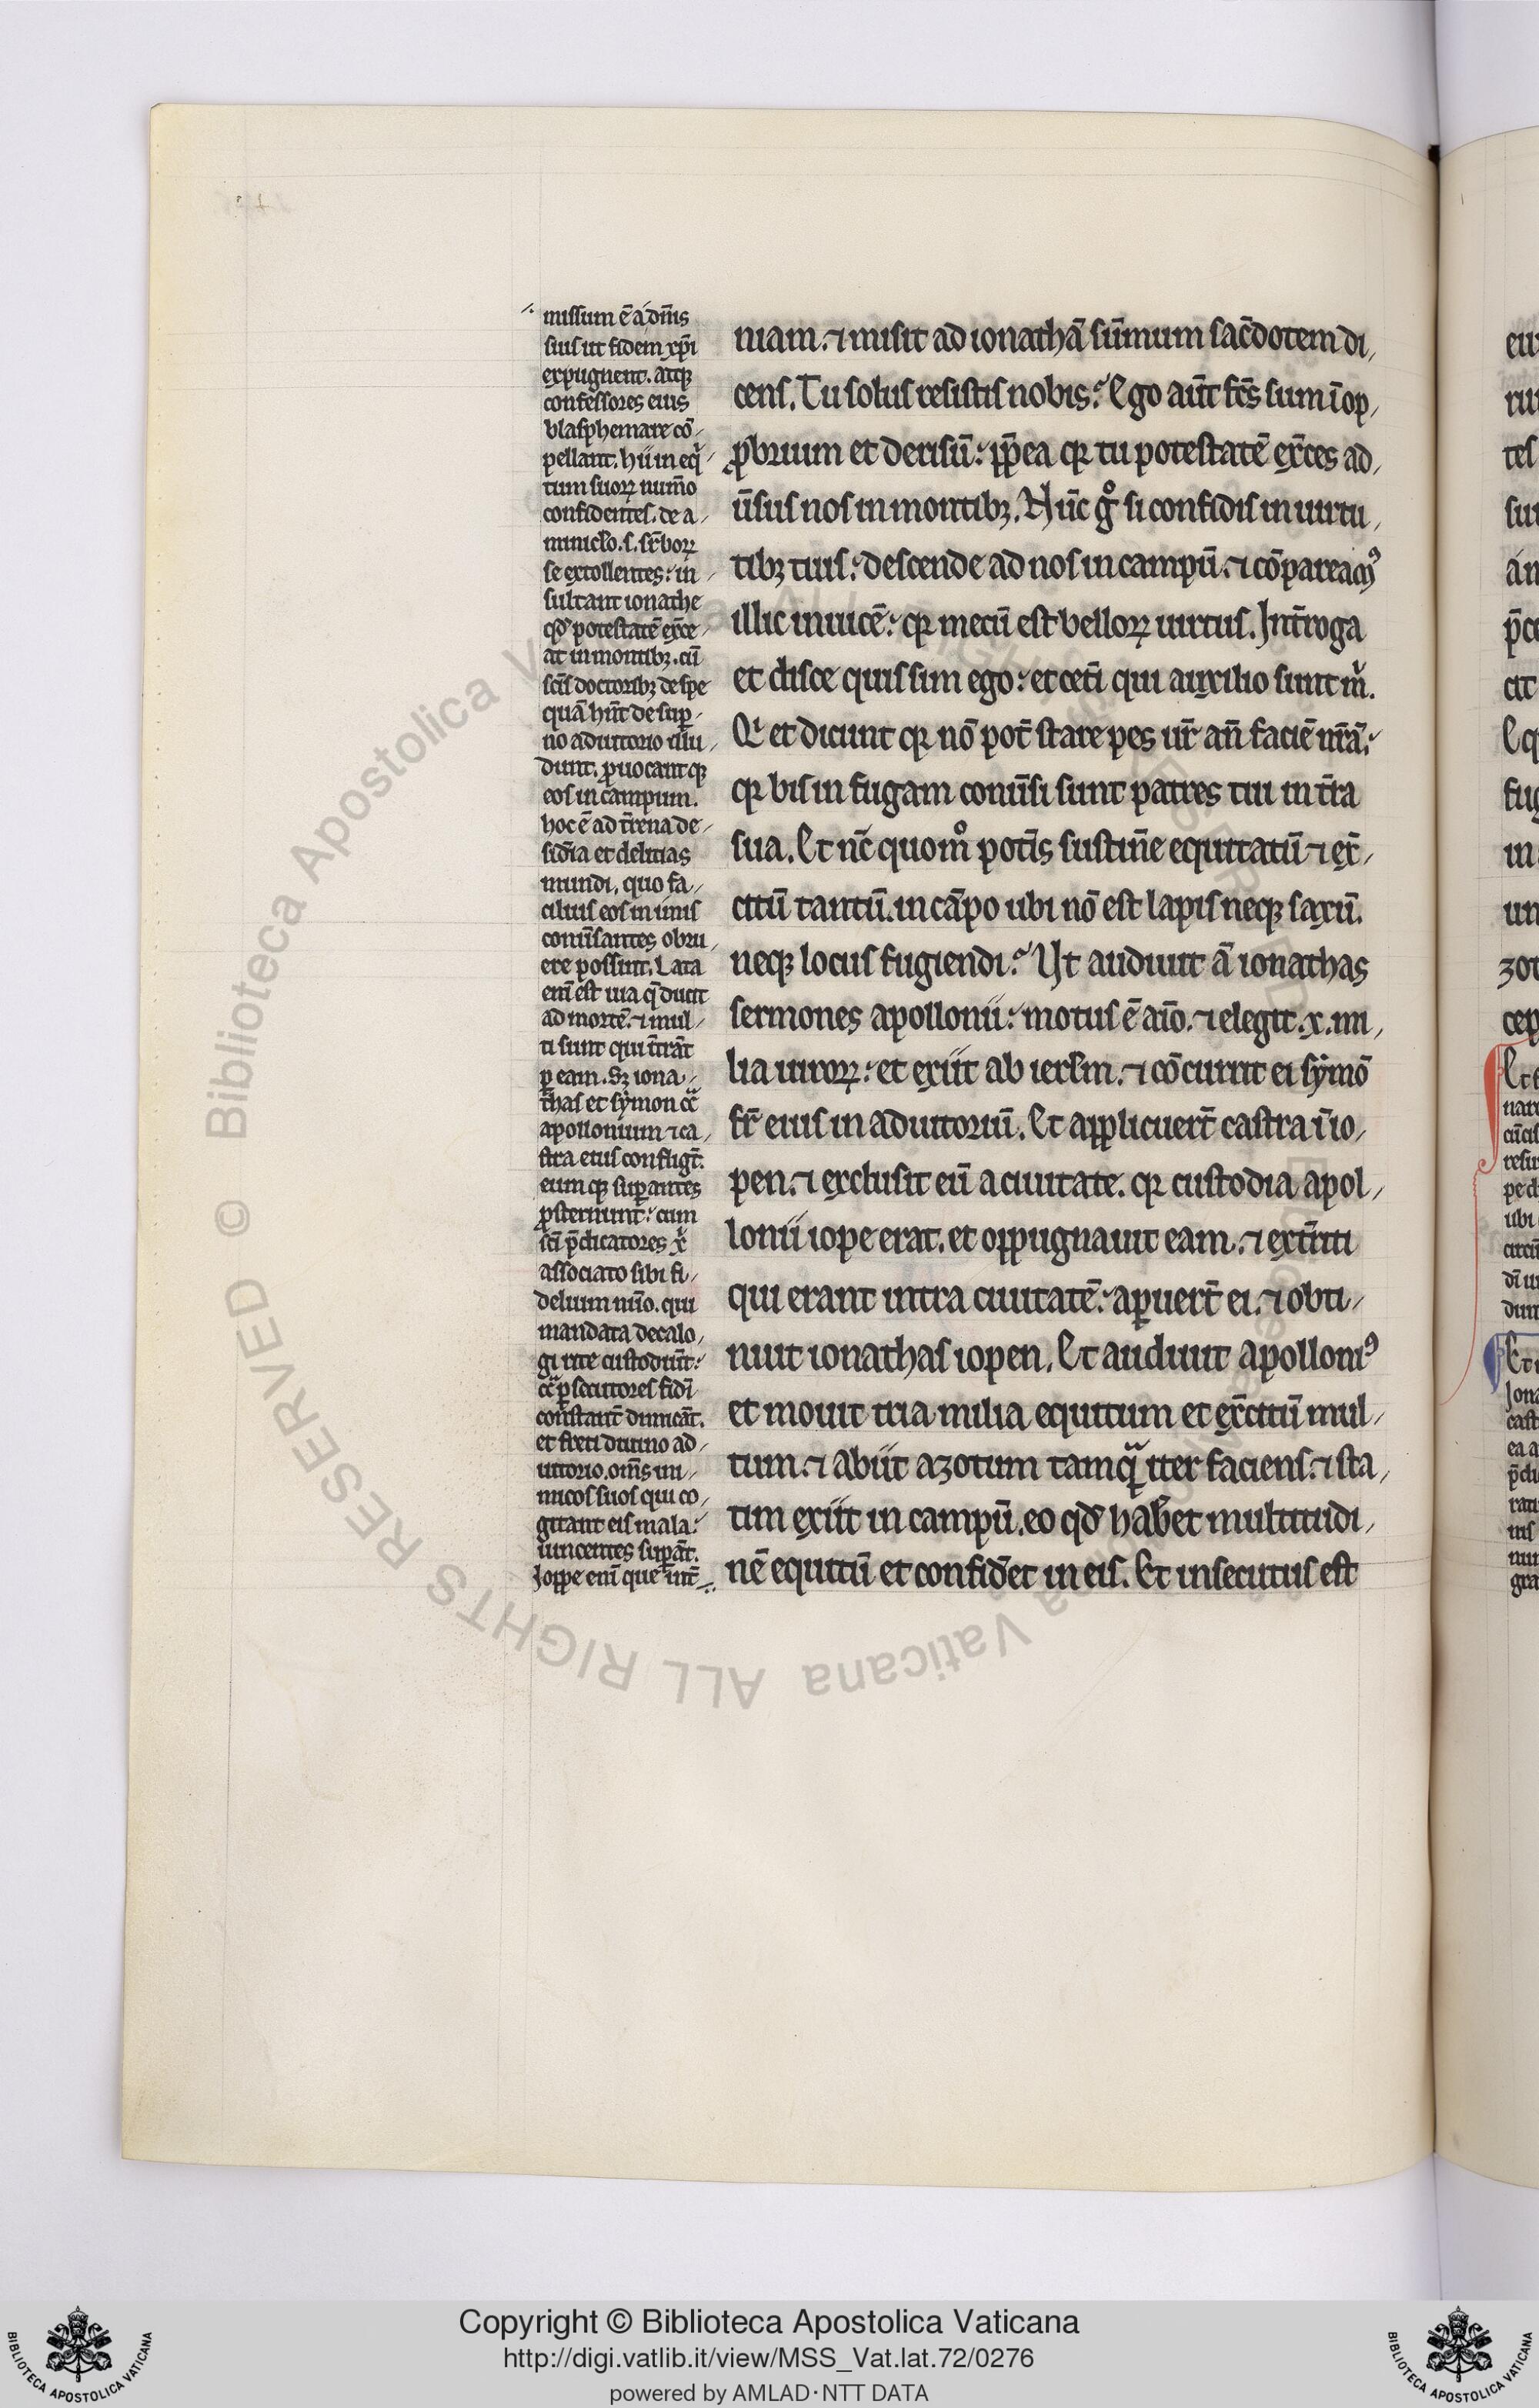 missum ē a dm̄is
suis ut fidem xp̄i
expugnent. atq₃
confessores eius
blasphemare cō
pellant. hii in eq̇
tum suoꝝ num̄o
confidentes. de a
miniclo. s. sr̄boꝝ
se extollentes: in
sultant ionathe
qd̕ potestatē ex̄ce
at in montib₃. cū
scīs doctorib₃ de spe
quā hn̄t de suꝑ
no adiutorio illu
dunt. ꝓuocant q₃
eos in campum.
hoc ē ad tr̄ena de
sid̄ia et delitias
mundi, quo fa
cilius eos in imis
conuūsantes obru
ere possint. Lata
enī est uia q̄ ducit
ad mortē. ⁊ mul
ti sunt qui īt̄rāt
ꝑ eam. S₃ iona
thas et symon cͣ
apollonium ⁊ ca
stra eius confligt̄.
eum q₃ suꝑantes
ꝓsternunt: cum
scī p̄dicatores x̄
associato sibi fi
delium nūo. qui
mandata decalo
gi rite custodiūt:
cͣ ꝑsecutores fidī
constant̄ dimicāt.
et freti diuino ad
iutorio. om̄s ini
micos suos qui co
gitant eis mala:
uincentes suꝑāt.
Joppe enī que int̄
niam. ⁊ misit ad ionathā sūmum sac̄dotem di
cens. Tu solus resistis nobis: Ego aūt fc̄s sum ī op
ꝓbrium et derisū: ꝓp̄ea qꝛ tu potestatē ex̄ces ad
ūsus nos in montib₃. Nūc gͦ si confidis in uirtu
tib₃ tuis: descende ad nos in campū. ⁊ cōpareamꝰ
illic inuicē: qꝛ mecū est belloꝝ uirtus. Int̄roga
et disce quis sim ego: et cet̄i qui auxilio sunt m̍.
Qͥ et dicunt qꝛ nō pot̄ stare pes ur̄ an̄ faciē nr̄ā:
qꝛ bis in fugam conūsi sunt patres tui in t̄ra
sua. Et nc̄ quomͦ potīs sustin̄e equitatū ⁊ ex̄
citū tantū. in cāpo ubi nō est lapis neq₃ saxū.
neq₃ locus fugiendi: Ut audiuit ā ionathas
sermones apollonii: motus ē aīo. ⁊ elegit. x. mi
lia uiroꝝ: et exiit ab ierl̄m. ⁊ cōcurrit ei symō
fr̄ eius in adiutoriū. Et applicuer̄t castra ī io
pen. ⁊ exclusit eū a ciuitate. qꝛ custodia apol
lonii iope erat. et oppugnauit eam. ⁊ ext̄riti
qui erant intra ciuitatē: aꝑuer̄t ei. ⁊ obti
nuit ionathas iopen. Et audiuit apolloniꝰ
et mouit tria milia equitum et ex̄citū mul
tum. ⁊ abiit azotum tamqͣ iter faciens. ⁊ sta
tim exiit in campū. eo qd̕ hab̄et multitudi
nē equitū et confid̄et in eis. Et insecutus est
Copyright © Biblioteca Apostolica Vaticana
http://digi.vatlib.it/view/MSS_Vat.lat.72/0276
powered by AMLAD·NTT DATA